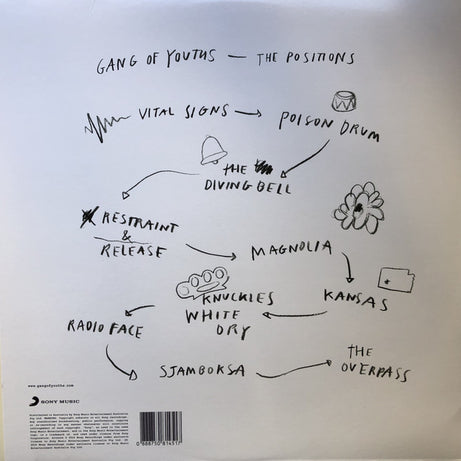 GANG OF YOUTHS — THE POSITIONS
VITAL SIGNS
POISON DRUM
THE
DIVING BELL
RESTRAINT
&
RELEASE
MAGNOLIA
KANSAS
KNUCKLES
WHITE
DRY
RADIO FACE
SJAMBOKSA
THE
OVERPASS
www.gangofyouths.com
SONY MUSIC